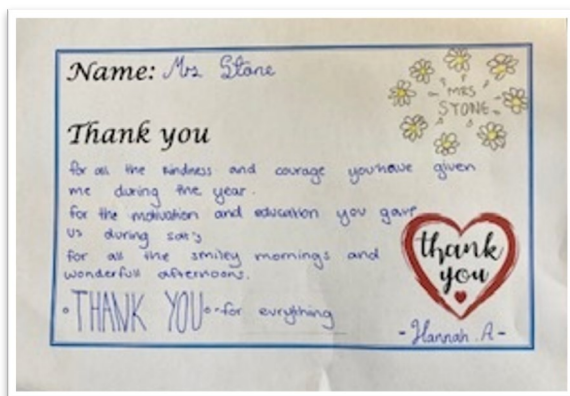 Name: Mrs Stone
MRS
STONE
Thank you
for all the kindness and courage you have given
me during the year.
for the motivation and education you gave
us during sat's
for all the smiley mornings and
wonderfull afternoons.
THANK YOU for eurything
thank
you
-Hannah .A-